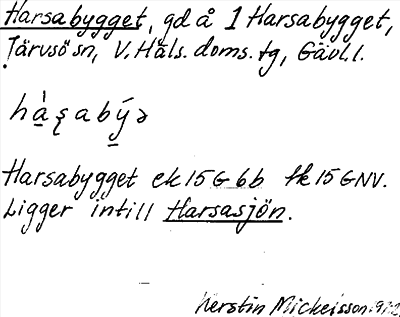 Harsabygget, gd å 1 Harsabygget,
Järvsö sn, V. Häls. doms. tg, Gävl. l.
hà̱ȿabý̱ə
Harsabygget ek 15 G 6b tk 15 GNV.
Ligger intill Harsasjön.
Kerstin Mickelsson 1972